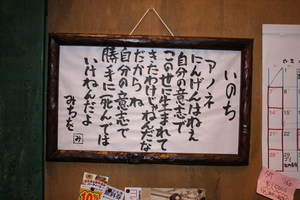 いのち
アノネ
にんげんはねぇ
自分の意志で
この世に生まれて
きたわけじゃねんだな
だからね
自分の意志で
勝手に死んでは
いけねんだよ
みつを
み
10%